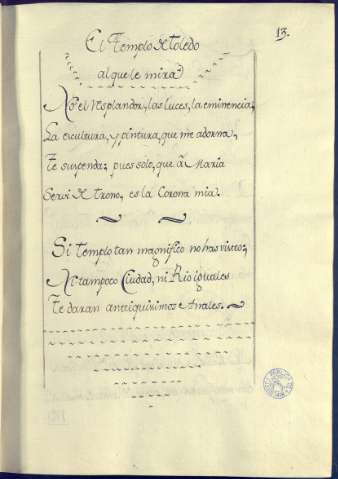 13.
El Templo de Toledo
al que le mira.
No el resplandor, las luces, la eminencia;
La escultura, y pintura, que me adorna,
Te suspenda; pues solo, que â Maria
Servi de trono, es la Corona mia.
Si templo tan magnifico no has visto;
Ni tampoco Ciudad, ni Rio iguales
Te daran antiquisimos Anales.